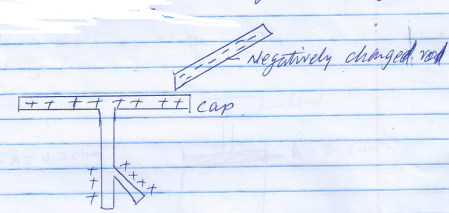 Negatively changed rod
+ + + + + + + + cap
+ + + +
+ + +